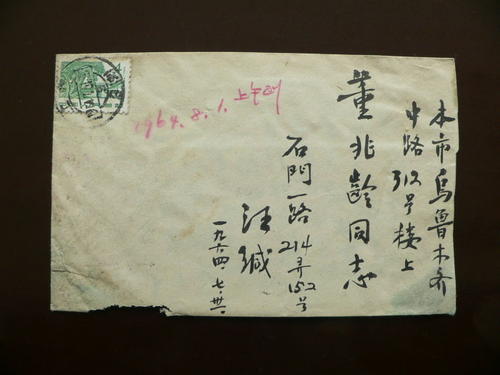 本市乌鲁木齐
中路312号楼上
董兆龄同志
石門一路214弄152号
汪缄
一九六四.七.卅一
1964.8.1.上午到